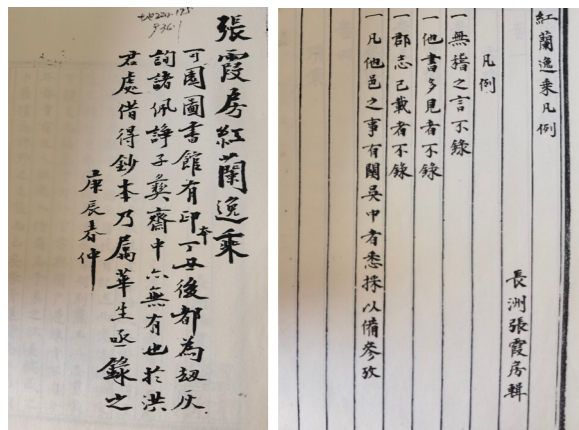 張霞房紅蘭逸乘
可園圖書館有印本丁丑後都為劫灰
詢諸佩諍子彝齋中亦無有也於洪
君處借得鈔本乃屬華生亟錄之
庚辰春仲
紅蘭逸乘凡例
長洲張霞房輯
凡例
一無稽之言不錄
一他書多見者不錄
一郡志已載者不錄
一凡他邑之事有關吳中者悉採以備參攷